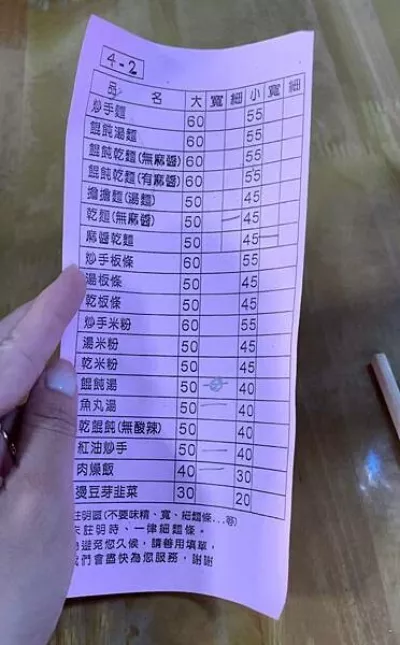 4-2
品 名 大 寬 細 小 寬 細
炒手麵 60 55
餛飩湯麵 60 55
餛飩乾麵(無麻醬) 60 55
餛飩乾麵(有麻醬) 60 55
擔擔麵(湯麵) 50 45
乾麵(無麻醬) 50 一 45
麻醬乾麵 50 45 一
炒手板條 60 55
湯板條 50 45
乾板條 50 45
炒手米粉 60 55
湯米粉 50 45
乾米粉 50 45
餛飩湯 50 40
魚丸湯 50 一 40
乾餛飩(無酸辣) 50 40
紅油炒手 50 一 40
肉燥飯 40 一 30
燙豆芽韭菜 30 20
註明區(不要味精、寬、細麵條...等)
未註明時、一律細麵條。
為避免您久候，請善用填單，
我們會盡快為您服務，謝謝